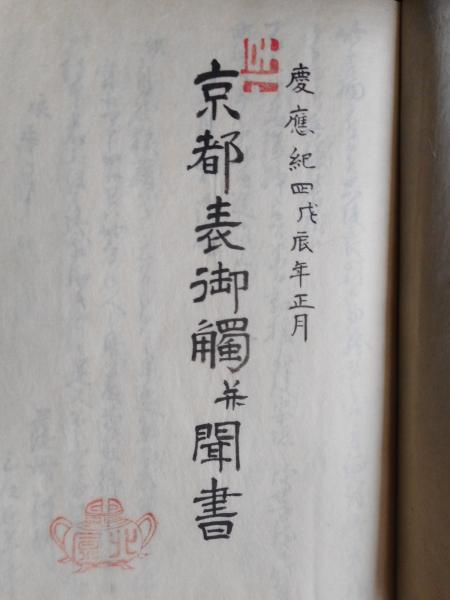 慶應紀四戊辰年正月
京都表御觸并聞書